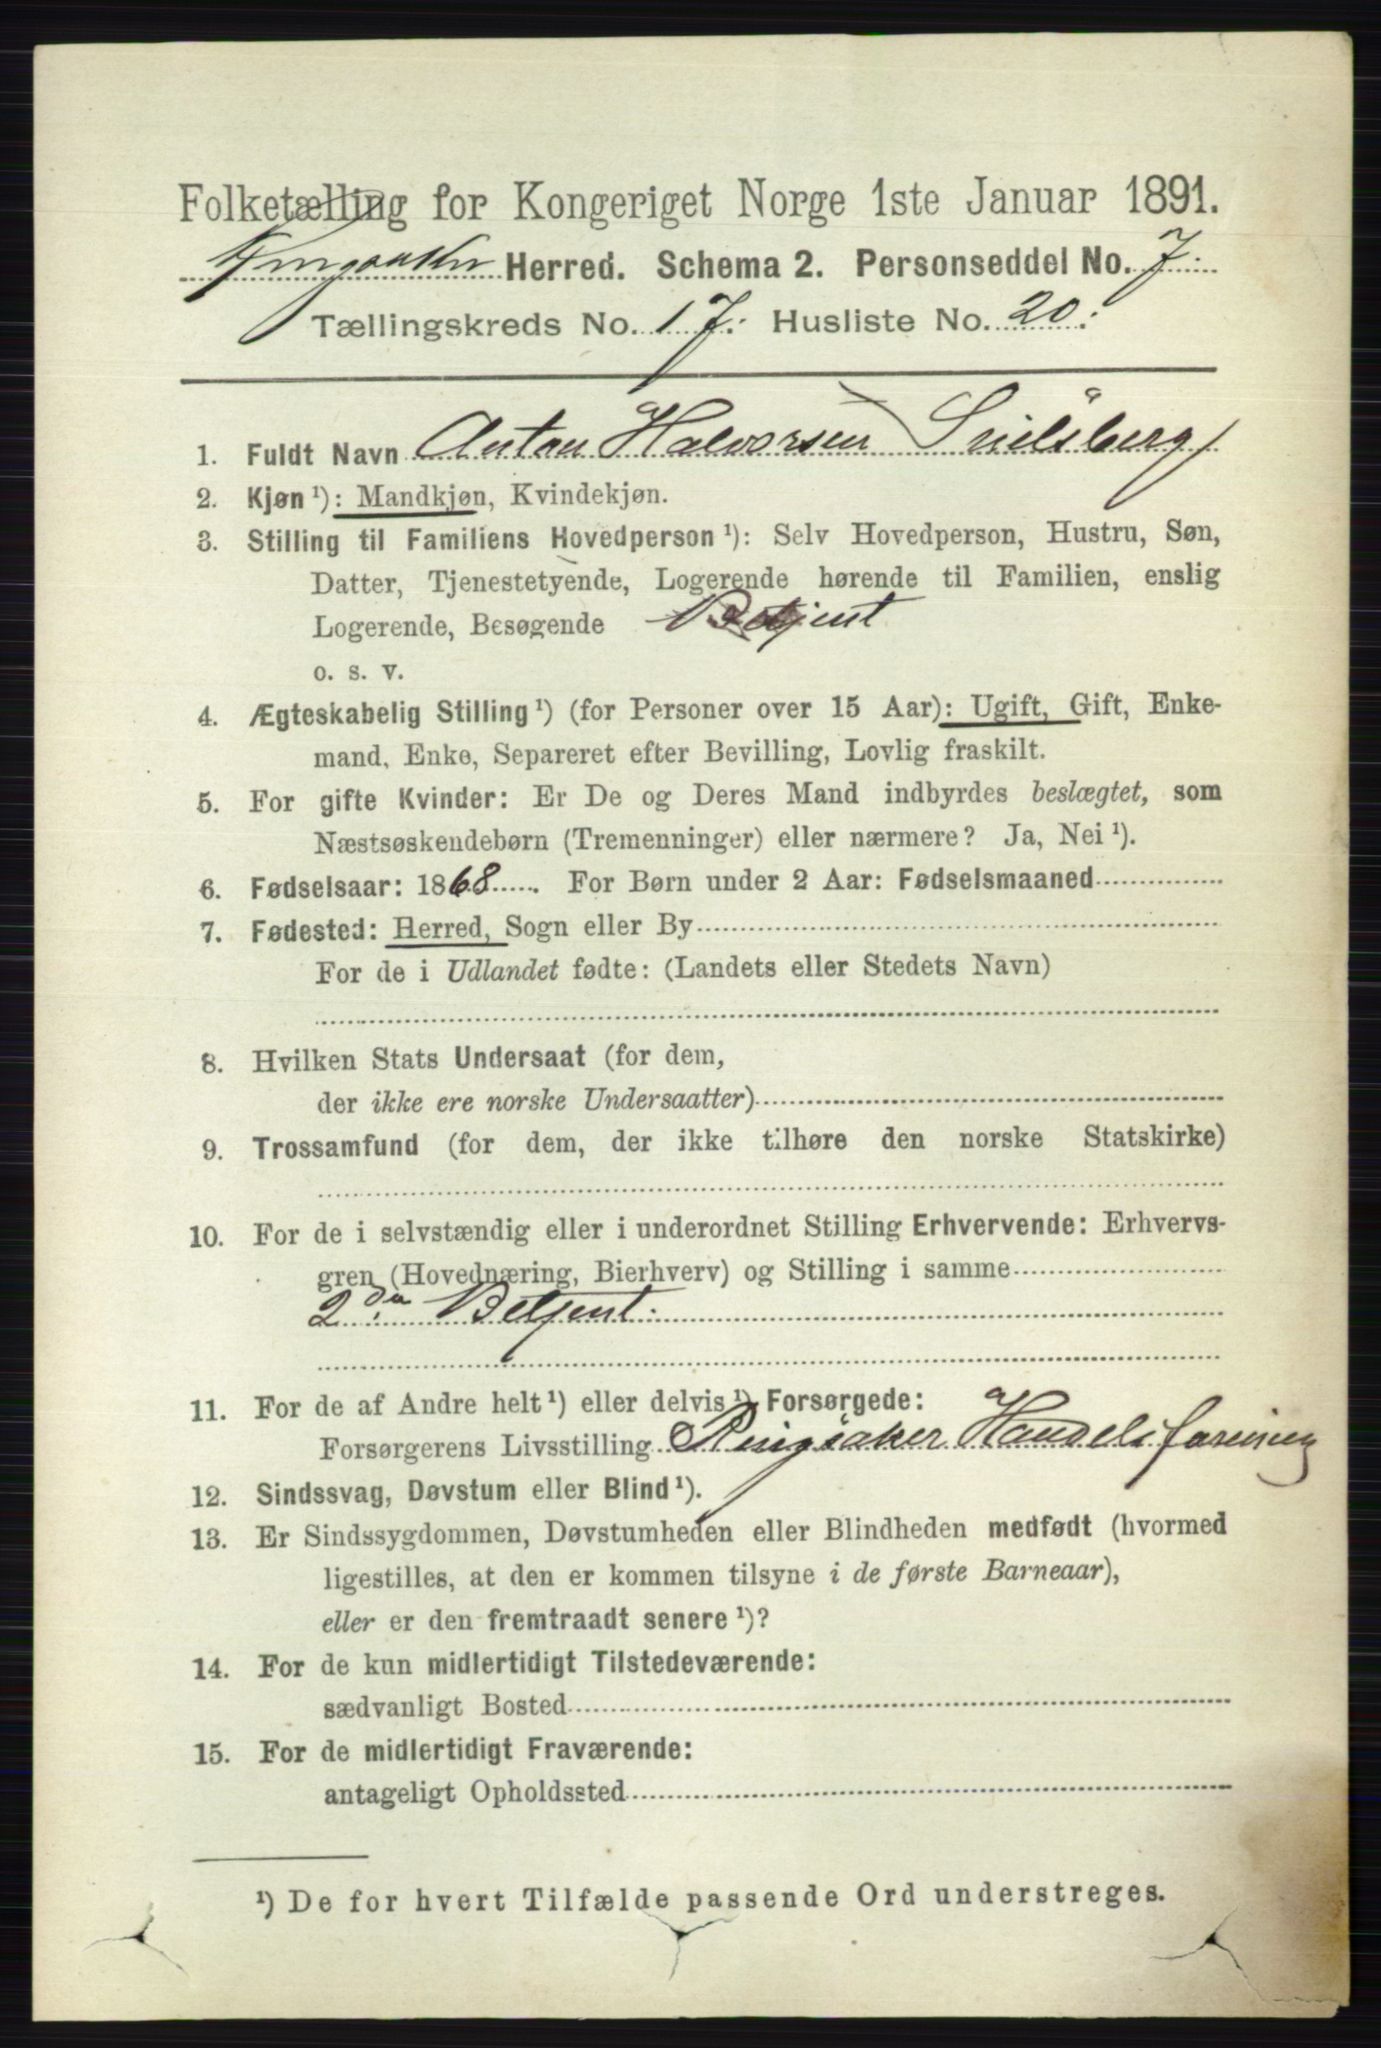 Folketælling for Kongeriget Norge 1ste Januar 1891.
Ringsaker Herred. Schema 2. Personseddel No. 7.
Tællingskreds No. 17. Husliste No. 20.
1. Fuldt Navn Anton Halvorsen
2. Kjøn ¹): Mandkjøn, Kvindekjøn.
3. Stilling til Familiens Hovedperson ¹): Selv Hovedperson, Hustru, Søn,
Datter, Tjenestetyende, Logerende hørende til Familien, enslig
Logerende, Besøgende Betjent
o. s. v.
4. Ægteskabelig Stilling ¹) (for Personer over 15 Aar): Ugift, Gift, Enke-
mand, Enke, Separeret efter Bevilling, Lovlig fraskilt.
5. For gifte Kvinder: Er De og Deres Mand indbyrdes beslægtet, som
Næstsøskendebørn (Tremenninger) eller nærmere? Ja, Nei ¹).
6. Fødselsaar: 1868. For Børn under 2 Aar: Fødselsmaaned
7. Fødested: Herred, Sogn eller By
For de i Udlandet fødte: (Landets eller Stedets Navn)
8. Hvilken Stats Undersaat (for dem,
der ikke ere norske Undersaatter)
9. Trossamfund (for dem, der ikke tilhøre den norske Statskirke)
10. For de i selvstændig eller i underordnet Stilling Erhvervende: Erhvervs-
gren (Hovednæring, Bierhverv) og Stilling i samme
2den Betjent.
11. For de af Andre helt ¹) eller delvis ¹) Forsørgede:
Forsørgerens Livsstilling Ringsaker Handelsforening
12. Sindssvag, Døvstum eller Blind ¹).
13. Er Sindssygdommen, Døvstumheden eller Blindheden medfødt (hvormed
ligestilles, at den er kommen tilsyne i de første Barneaar),
eller er den fremtraadt senere ¹)?
14. For de kun midlertidigt Tilstedeværende:
sædvanligt Bosted
15. For de midlertidigt Fraværende:
antageligt Opholdssted
¹) De for hvert Tilfælde passende Ord understreges.